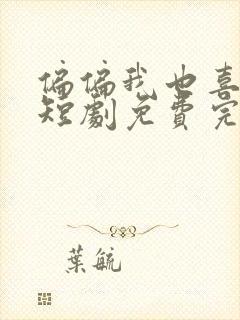 偏偏我也喜
短劇免費完
葉毓